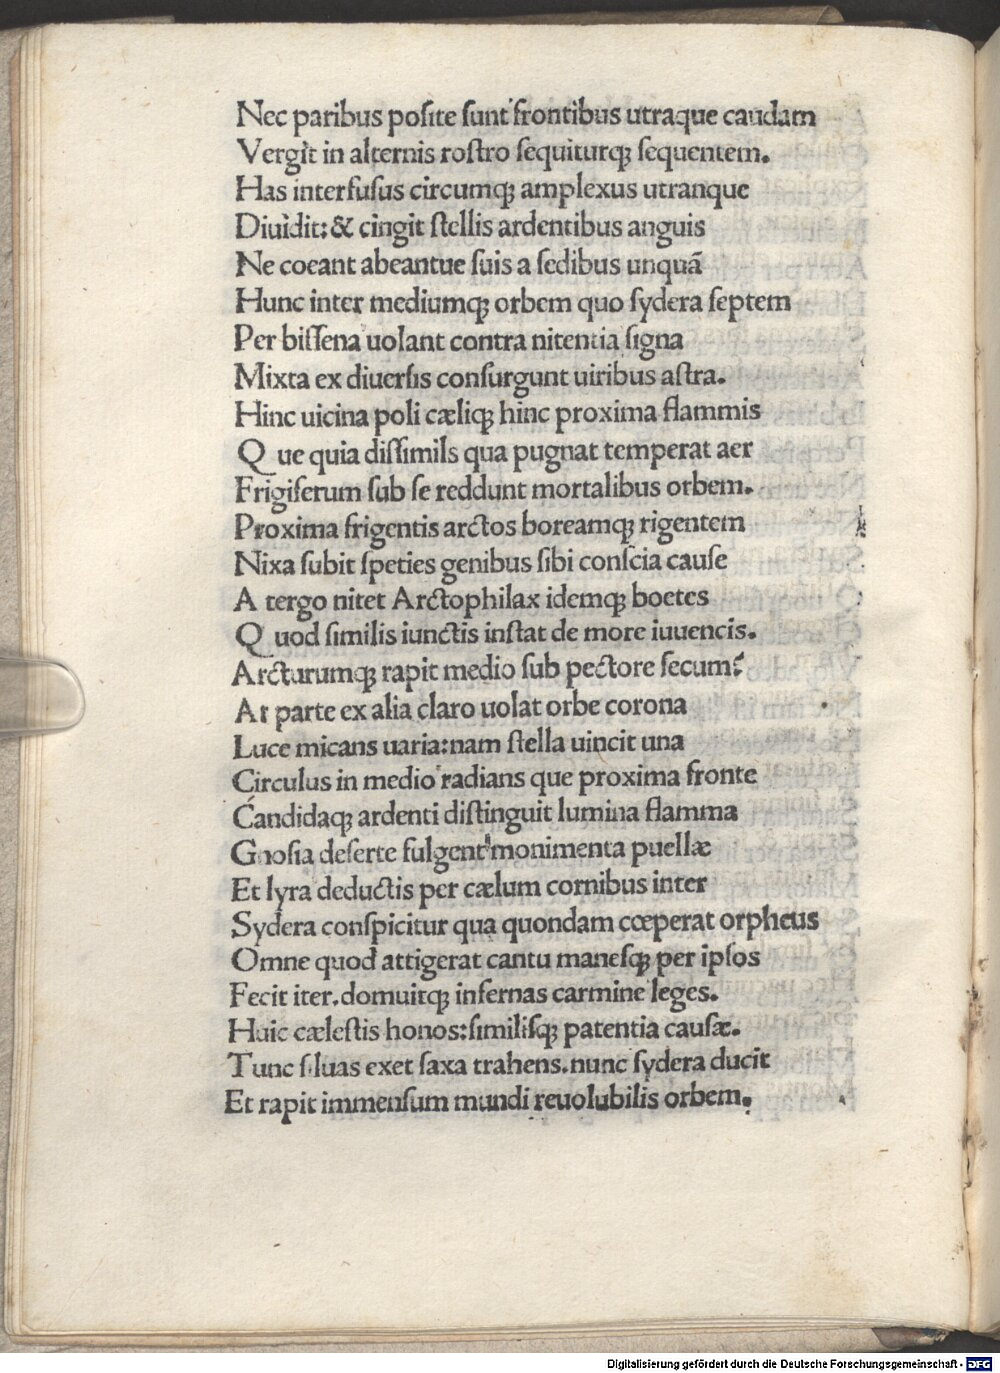 Nec paribus posite sunt frontibus utraque caudam
Vergit in alternis rostro sequiturqꝫ sequentem.
Has interfusus circumqꝫ amplexus utranque
Diuidit: & cingit stellis ardentibus anguis
Ne coeant abeantue suis a sedibus unquã
Hunc inter mediumqꝫ orbem quo sydera septem
Per bissena uolant contra nitentia signa
Mixta ex diuersis consurgunt uiribus astra.
Hinc uicina poli cæliqꝫ hinc proxima flammis
Q ue quia dissimils qua pugnat temperat aer
Frigiferum sub se reddunt mortalibus orbem.
Proxima frigentis arctos boreamqꝫ rigentem
Nixa subit speties genibus sibi conscia cause
A tergo nitet Arctophilax idemqꝫ boetes
Q uod similis iunctis instat de more iuuencis.
Arcturumqꝫ rapit medio sub pectore secum:
At parte ex alia claro uolat orbe corona
Luce micans uaria: nam stella uincit una
Circulus in medio radians que proxima fronte
Candidaqꝫ ardenti distinguit lumina flamma
Gnosia deserte fulgent monimenta puellæ
Et lyra deductis per cælum cornibus inter
Sydera conspicitur qua quondam cœperat orpheus
Omne quod attigerat cantu manesqꝫ per ipsos
Fecit iter. domuitqꝫ infernas carmine leges.
Huic cælestis honos: similisqꝫ patentia causæ.
Tunc siluas exet saxa trahens. nunc sydera ducit
Et rapit immensum mundi reuolubilis orbem.
Digitalisierung gefördert durch die Deutsche Forschungsgemeinschaft - DFG